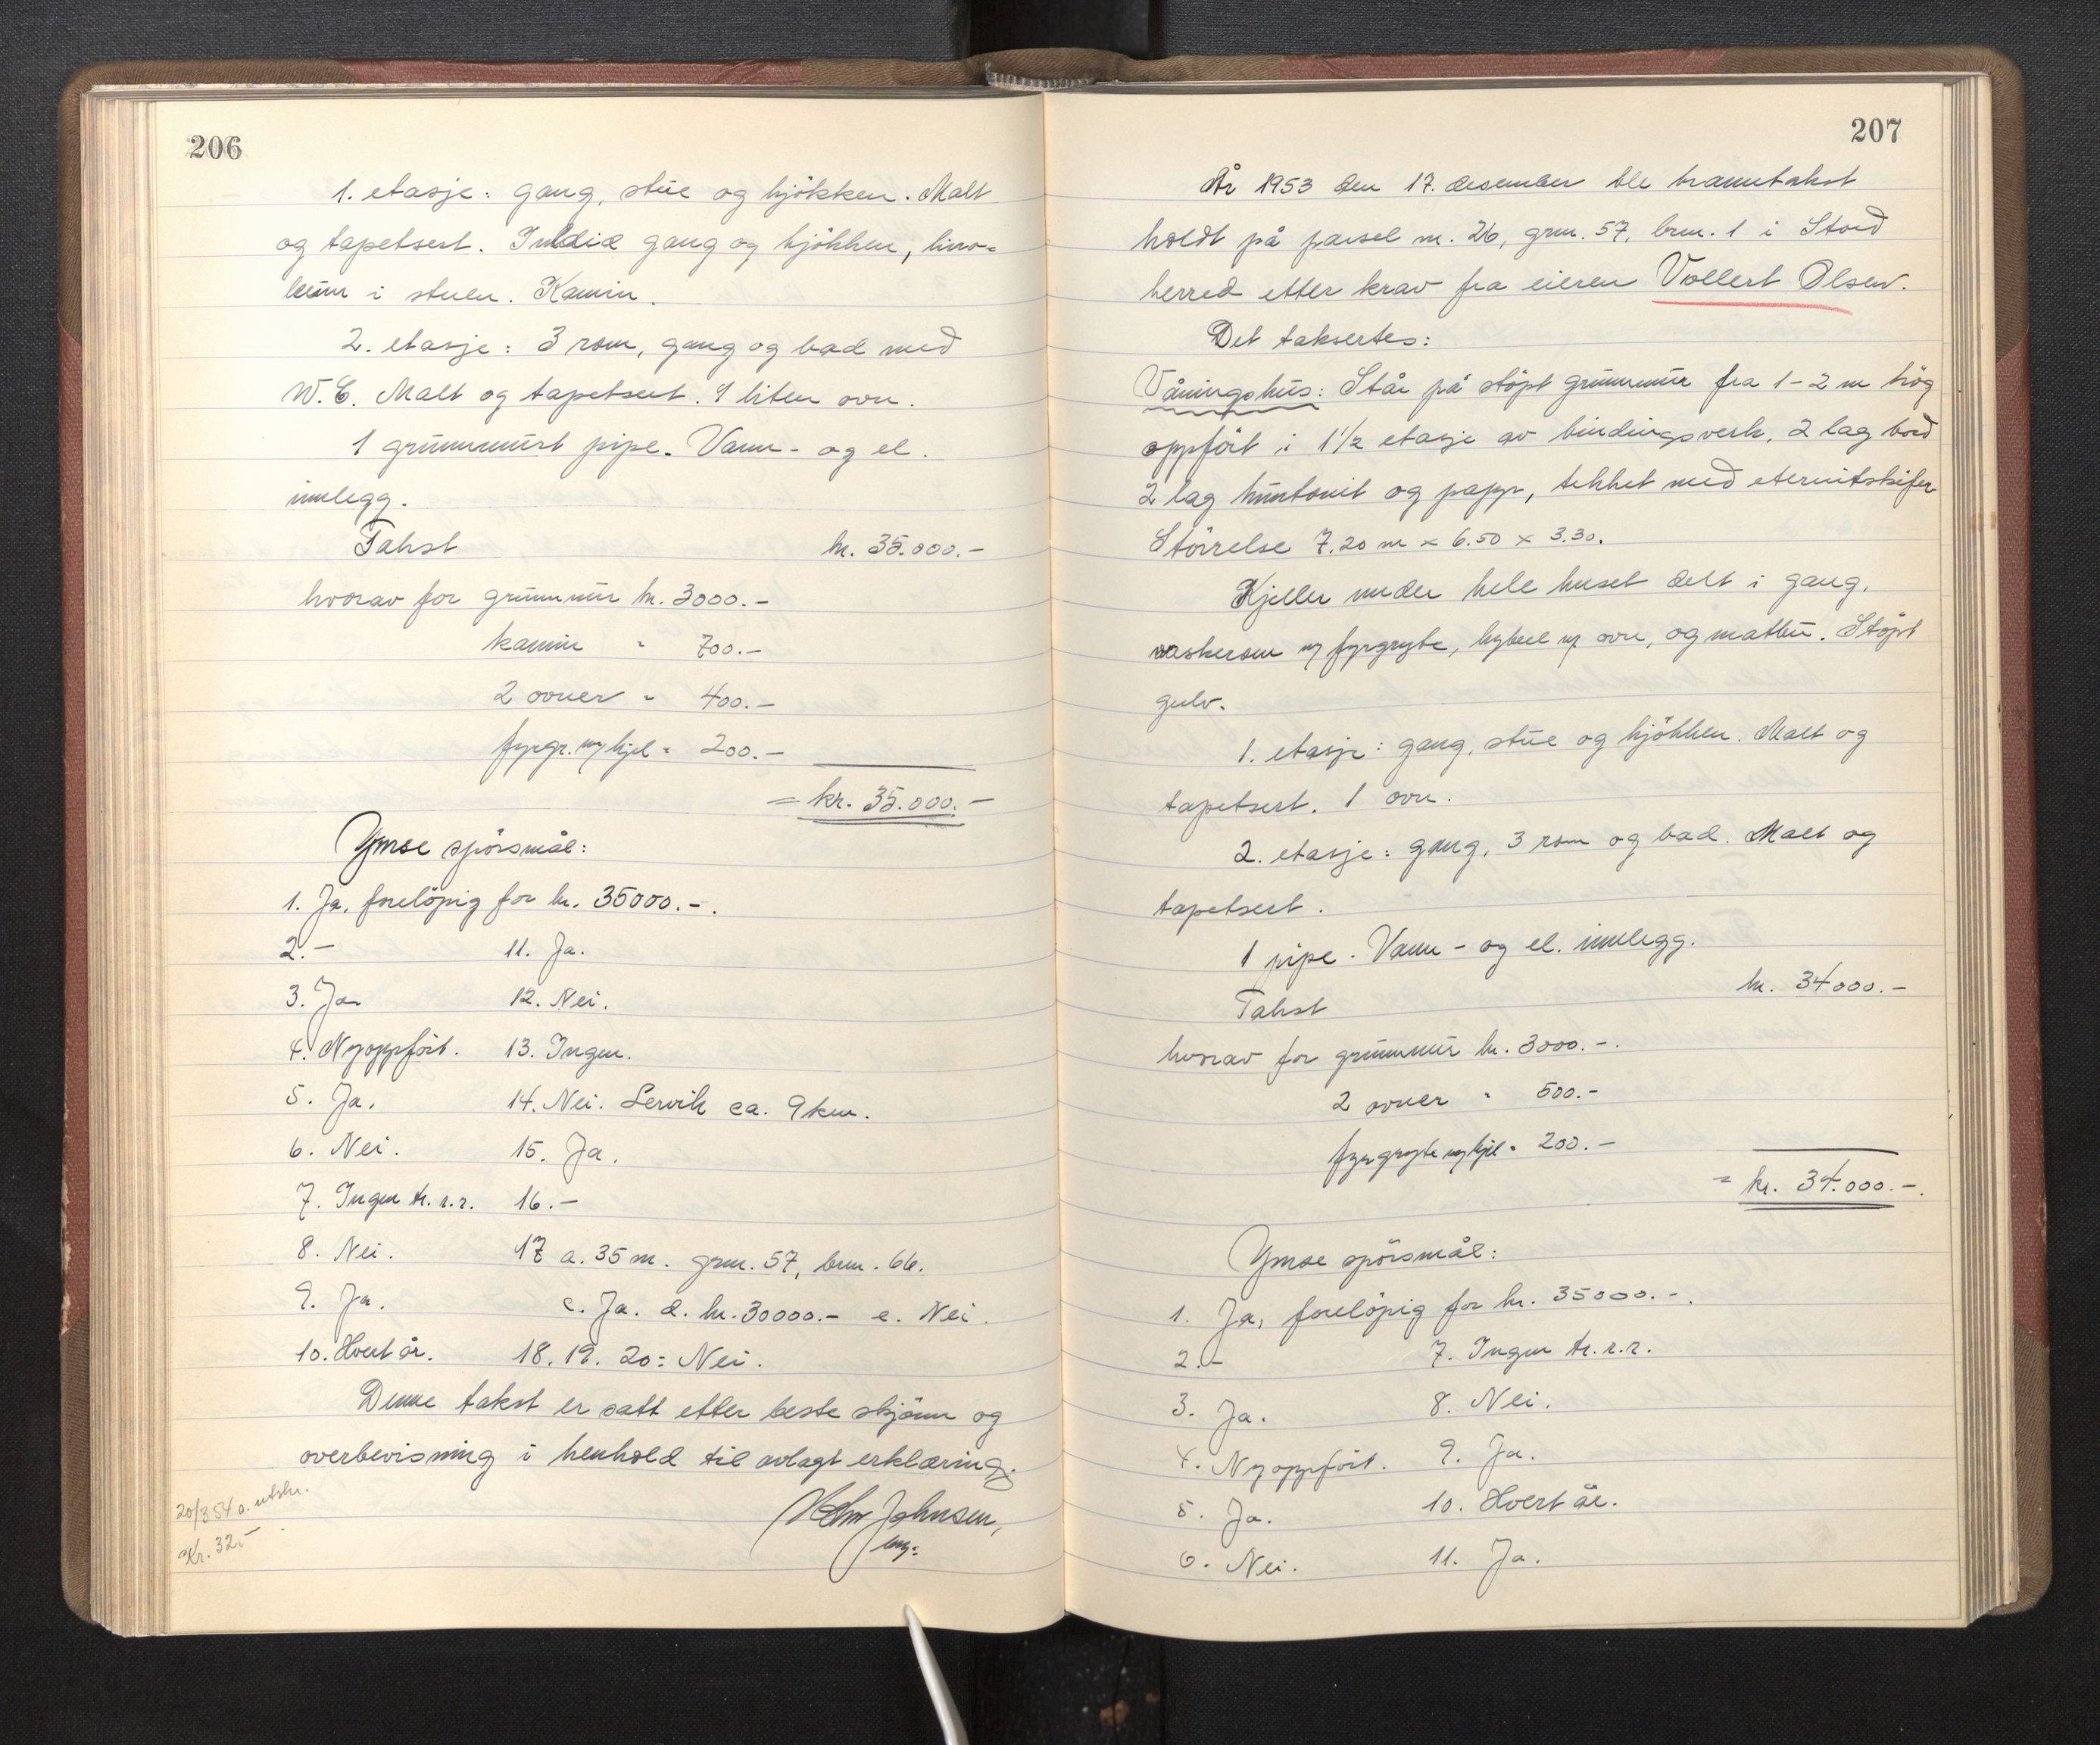 206
1. etasje: gang, stue og kjökken. Malt
og tapetsert. gang og kjökken, lino-
leum i stuen. Kamin.
2. etasje: 3 rom, gang og bad med
W.C. Malt og tapetsert. 1 liten ovn.
1 grunnmurt pipe. Vann- og el.
innlegg.
Takst kr. 35.000.-
hvorav for grunnmur kr. 3000.-
kamin " 700.-
2 ovner " 400.-
fyrgr. m/kjel " 200.-
= kr. 35.000.-
Ymse spörsmål:
1. Ja, forelöpig for kr. 35000.-.
2.- 11. Ja.
3. Ja 12. Nei.
4. Nyoppfört. 13. Ingen.
5. Ja. 14. Nei. Lervik ca. 9 km.
6. Nei. 15. Ja.
7. Ingen tr.r.r. 16.-
8. Nei. 17 a. 35 m. grn. 57, brn. 66.
9. Ja. c. Ja. d. kr. 30000.- e. Nei.
10. Hvert år. 18. 19. 20: Nei.
Denne takst er satt etter beste skjönn og
overbevisning i henhold til avlagt erklæring.
Johnsen,
20/3 54 a. utskr.
Kr. 32.-
207
År 1953 den 17. desember ble branntakst
holdt på parsel nr. 26, grn. 57, brn. 1 i Stord
herred etter krav fra eieren Vollert Olsen.
Det taksertes:
Våningshus: Står på støpt grunnmur fra 1-2 m høg
oppfört i 1 1/2 etasje av bindingsverk, 2 lag bord
2 lag huntonit og papp, tekket med eternitskifer
Störrelse 7.20 m x 6.50 x 3.30.
Kjeller under hele huset delt i gang,
vaskerom m/ fyrgryte, hybel m/ ovn, og matbu. Støpt
gulv.
1. etasje: gang, stue og kjökken. Malt og
tapetsert. 1 ovn.
2. etasje: gang, 3 rom og bad. Malt og
tapetsert.
1 pipe. Vann- og el. innlegg.
Takst kr. 34000.-
hvorav for grunnmur kr. 3000.-.
2 ovner " 500.-
fyrgryte m/kjel " 200.-
= kr. 34.000.-.
Ymse spörsmål:
1. Ja, forelöpig for kr. 35000.-.
2.- 7. Ingen tr.r.r.
3. Ja. 8. Nei.
4. Nyoppfört. 9. Ja.
5. Ja. 10. Hvert år.
6. Nei. 11. Ja.